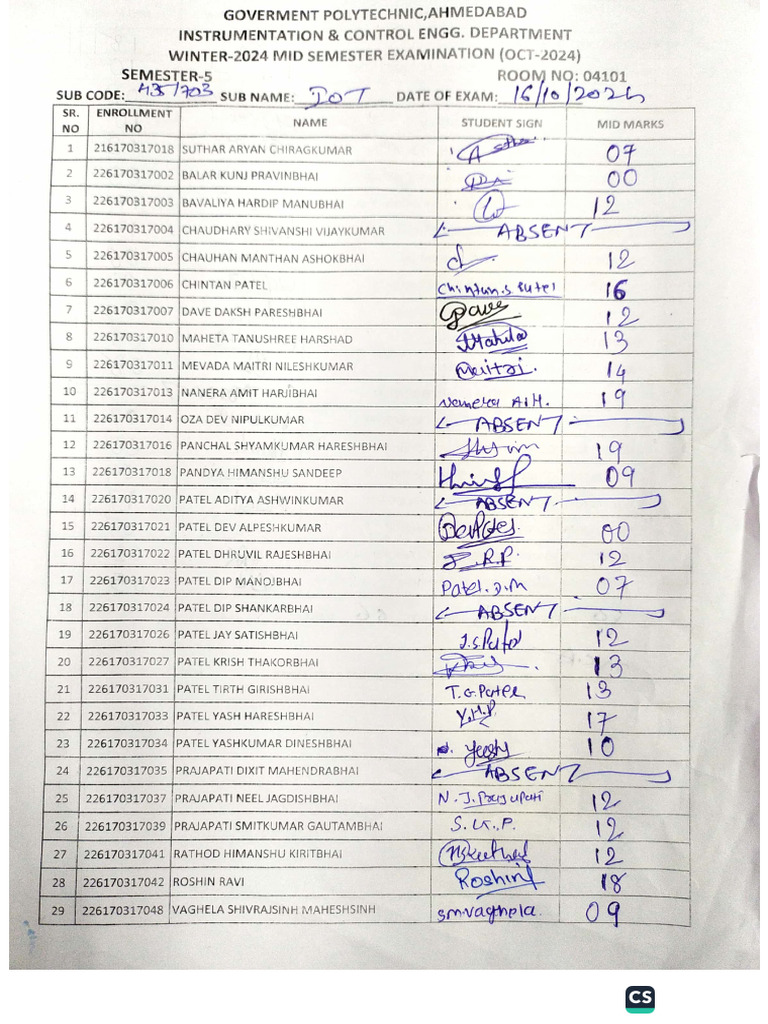 GOVERMENT POLYTECHNIC,AHMEDABAD
INSTRUMENTATION & CONTROL ENGG. DEPARTMENT
WINTER-2024 MID SEMESTER EXAMINATION (OCT-2024)
SEMESTER-5 ROOM NO: 04101
SUB CODE: 435/703 SUB NAME: IOT DATE OF EXAM: 16/10/2024
SR. NO ENROLLMENT NO NAME STUDENT SIGN MID MARKS
1 216170317018 SUTHAR ARYAN CHIRAGKUMAR 07
2 226170317002 BALAR KUNJ PRAVINBHAI 00
3 226170317003 BAVALIYA HARDIP MANUBHAI 12
4 226170317004 CHAUDHARY SHIVANSHI VIJAYKUMAR ABSENT
5 226170317005 CHAUHAN MANTHAN ASHOKBHAI 12
6 226170317006 CHINTAN PATEL Chintan.s.Patel 16
7 226170317007 DAVE DAKSH PARESHBHAI Dave 12
8 226170317010 MAHETA TANUSHREE HARSHAD 13
9 226170317011 MEVADA MAITRI NILESHKUMAR Maitri. 14
10 226170317013 NANERA AMIT HARJIBHAI Nanera A.H. 19
11 226170317014 OZA DEV NIPULKUMAR ABSENT
12 226170317016 PANCHAL SHYAMKUMAR HARESHBHAI Shyam 19
13 226170317018 PANDYA HIMANSHU SANDEEP 09
14 226170317020 PATEL ADITYA ASHWINKUMAR ABSENT
15 226170317021 PATEL DEV ALPESHKUMAR 00
16 226170317022 PATEL DHRUVIL RAJESHBHAI D.R.P. 12
17 226170317023 PATEL DIP MANOJBHAI Patel.D.M 07
18 226170317024 PATEL DIP SHANKARBHAI ABSENT
19 226170317026 PATEL JAY SATISHBHAI J.S.Patel 12
20 226170317027 PATEL KRISH THAKORBHAI 13
21 226170317031 PATEL TIRTH GIRISHBHAI T.G.Patel 13
22 226170317033 PATEL YASH HARESHBHAI Y.H.P 17
23 226170317034 PATEL YASHKUMAR DINESHBHAI 10
24 226170317035 PRAJAPATI DIXIT MAHENDRABHAI ABSENT
25 226170317037 PRAJAPATI NEEL JAGDISHBHAI N.J.Prajapati 12
26 226170317039 PRAJAPATI SMITKUMAR GAUTAMBHAI S.G.P. 12
27 226170317041 RATHOD HIMANSHU KIRITBHAI 12
28 226170317042 ROSHIN RAVI Roshin 18
29 226170317048 VAGHELA SHIVRAJSINH MAHESHSINH sm.vaghela. 09
CS